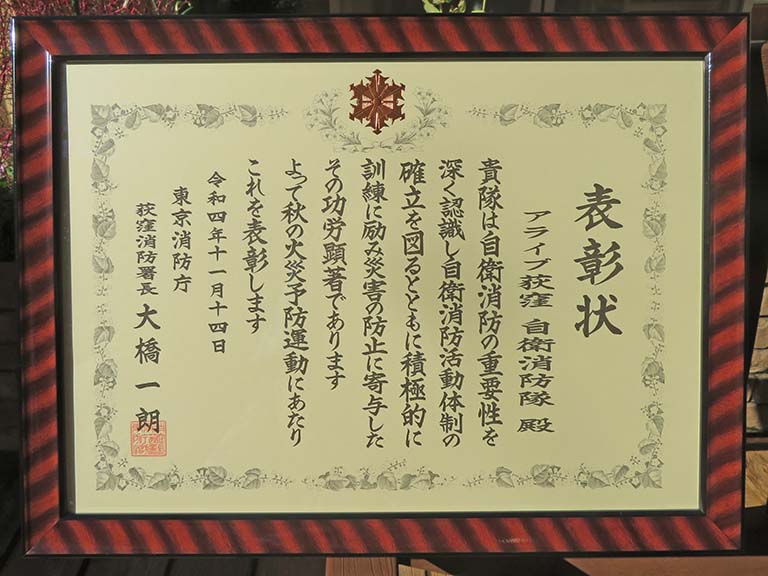 表彰状
アライブ荻窪 自衛消防隊 殿
貴隊は自衛消防の重要性を
深く認識し自衛消防活動体制の
確立を図るとともに積極的に
訓練に励み災害の防止に寄与した
その功労顕著であります
よって秋の火災予防運動にあたり
これを表彰します
令和四年十一月十四日
東京消防庁
荻窪消防署長 大橋一朗